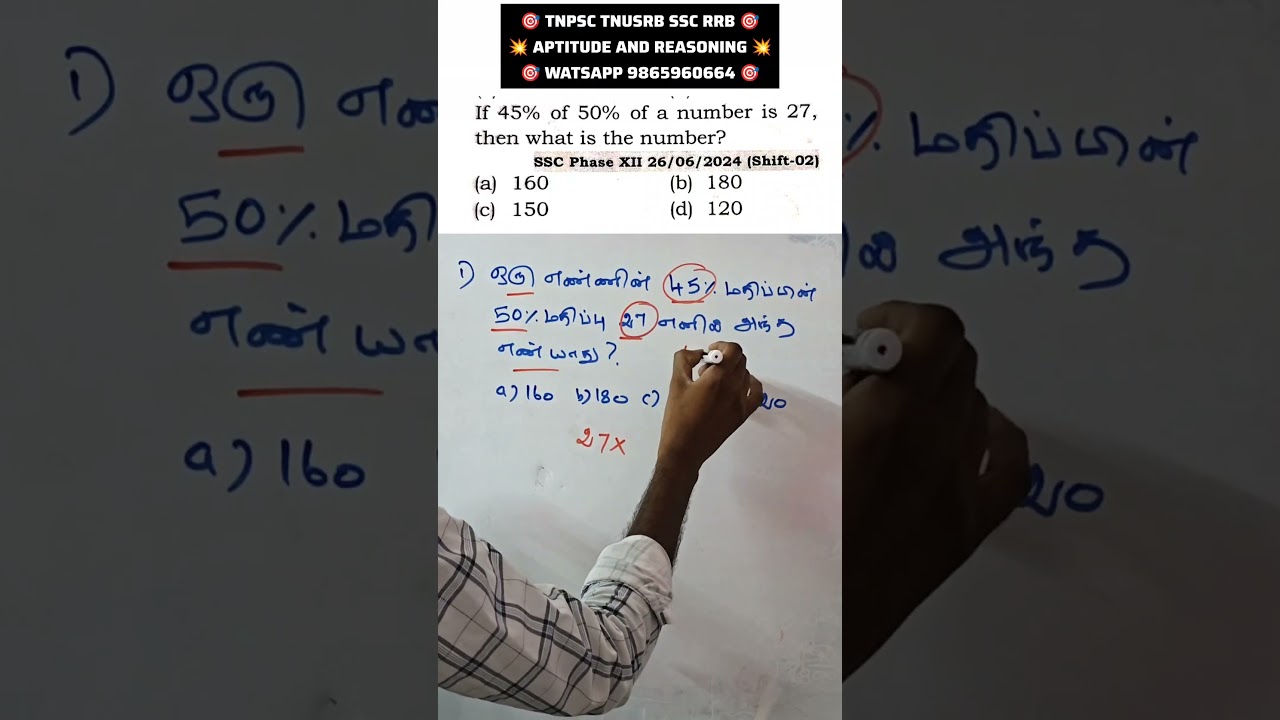 🎯 TNPSC TNUSRB SSC RRB 🎯
💥 APTITUDE AND REASONING 💥
🎯 WATSAPP 9865960664 🎯
If 45% of 50% of a number is 27,
then what is the number?
SSC Phase XII 26/06/2024 (Shift-02)
(a) 160 (b) 180
(c) 150 (d) 120
1) ஒரு எண்ணின் 45% மதிப்பின்
50% மதிப்பு 27 எனில் அந்த
எண் யாது?
a) 160 b) 180 c) 20
27x